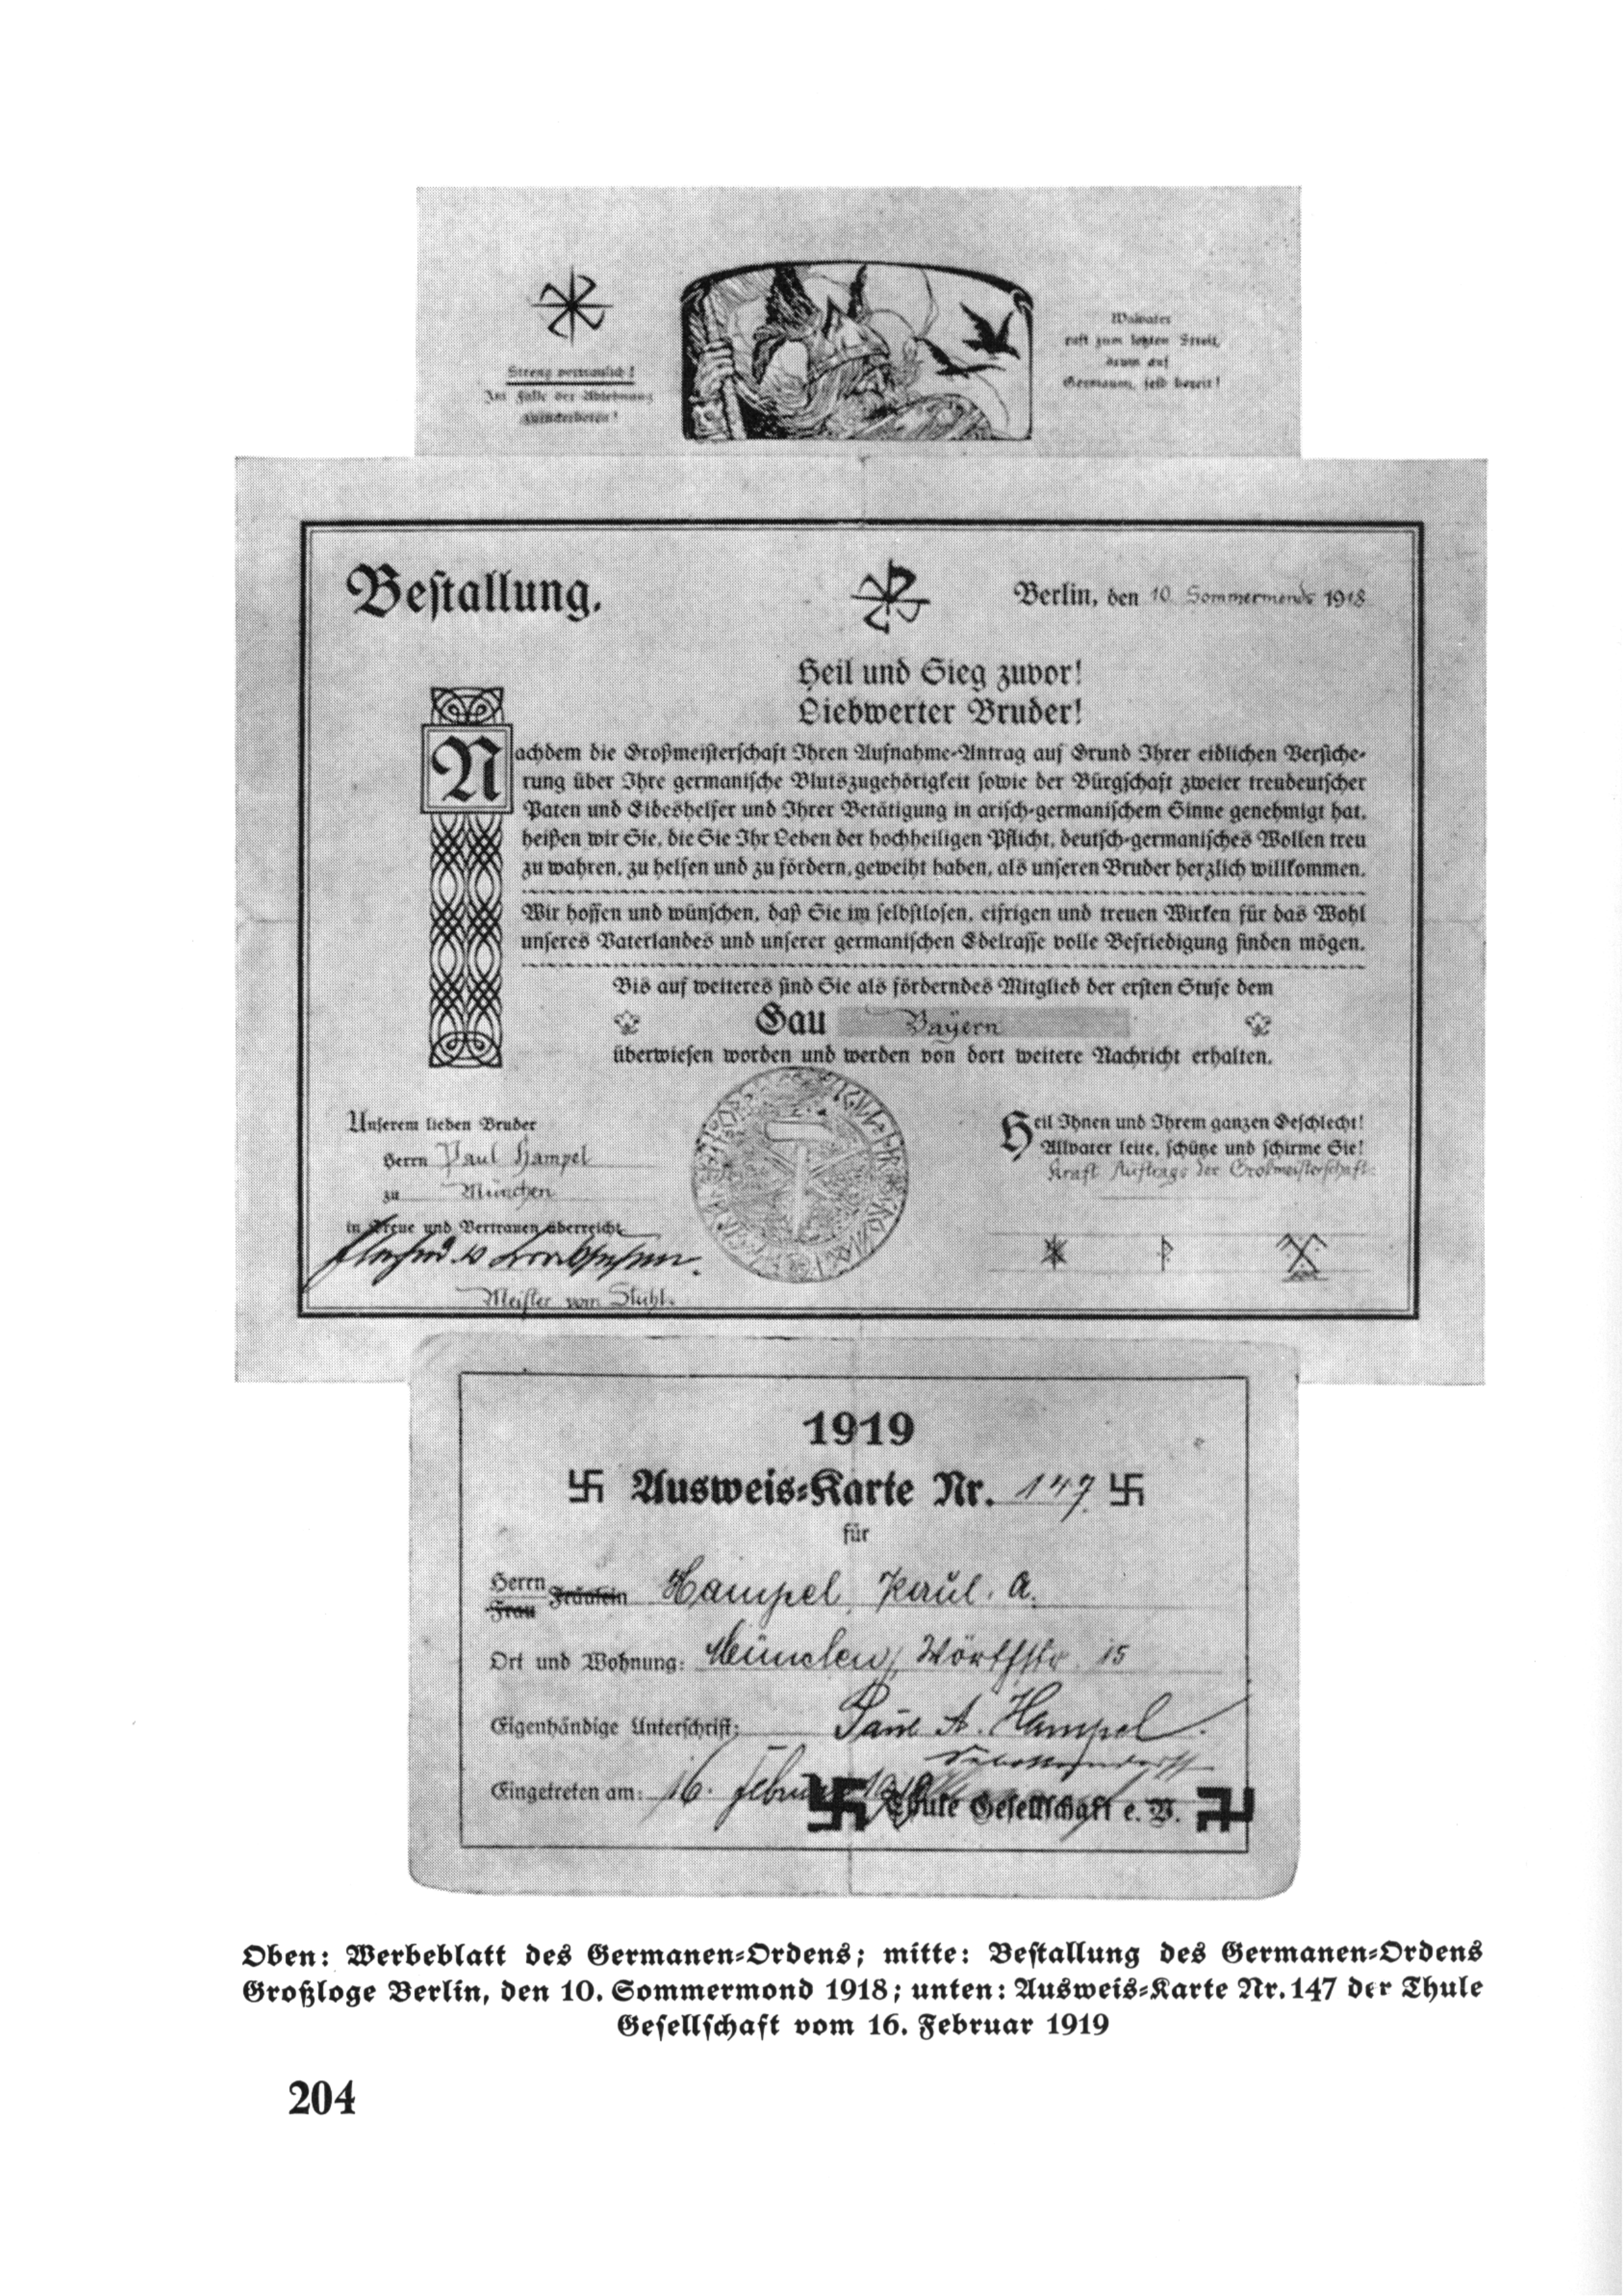 Streng vertraulich!
Im Falle der Ablehnung
zurückerbeten!
Walvater
ruft zum letzten Streit,
drum auf
Germanen, seid bereit!
Bestallung.
Berlin, den 10. Sommermonds 1918
Heil und Sieg zuvor!
Liebwerter Bruder!
Nachdem die Großmeisterschaft Ihren Aufnahme-Antrag auf Grund Ihrer eidlichen Versiche-
rung über Ihre germanische Blutszugehörigkeit sowie der Bürgschaft zweier treudeutscher
Paten und Eideshelfer und Ihrer Betätigung in arisch-germanischem Sinne genehmigt hat,
heißen wir Sie, die Sie Ihr Leben der hochheiligen Pflicht, deutsch-germanisches Wollen treu
zu wahren, zu helfen und zu fördern, geweiht haben, als unseren Bruder herzlich willkommen.
Wir hoffen und wünschen, daß Sie im selbstlosen, eifrigen und treuen Wirken für das Wohl
unseres Vaterlandes und unserer germanischen Edelrasse volle Befriedigung finden mögen.
Bis auf weiteres sind Sie als förderndes Mitglied der ersten Stufe dem
Gau Bayern
überwiesen worden und werden von dort weitere Nachricht erhalten.
Unserem lieben Bruder
Herrn Paul Hampel
zu München
in Treue und Vertrauen überreicht
Meister vom Stuhl.
Heil Ihnen und Ihrem ganzen Geschlecht!
Allvater leite, schütze und schirme Sie!
Kraft Auftrags der Großmeisterschaft:
1919
卐 Ausweis-Karte Nr. 147 卐
für
Herrn Fräulein Hampel, Paul. A.
Frau
Ort und Wohnung: München, Wörthstr. 15
Eigenhändige Unterschrift: Paul A. Hampel.
Sebottendorff
Eingetreten am: 16. Februar 1919
Thule Gesellschaft e. V.
Oben: Werbeblatt des Germanen-Ordens; mitte: Bestallung des Germanen-Ordens
Großloge Berlin, den 10. Sommermond 1918; unten: Ausweis-Karte Nr. 147 der Thule
Gesellschaft vom 16. Februar 1919
204